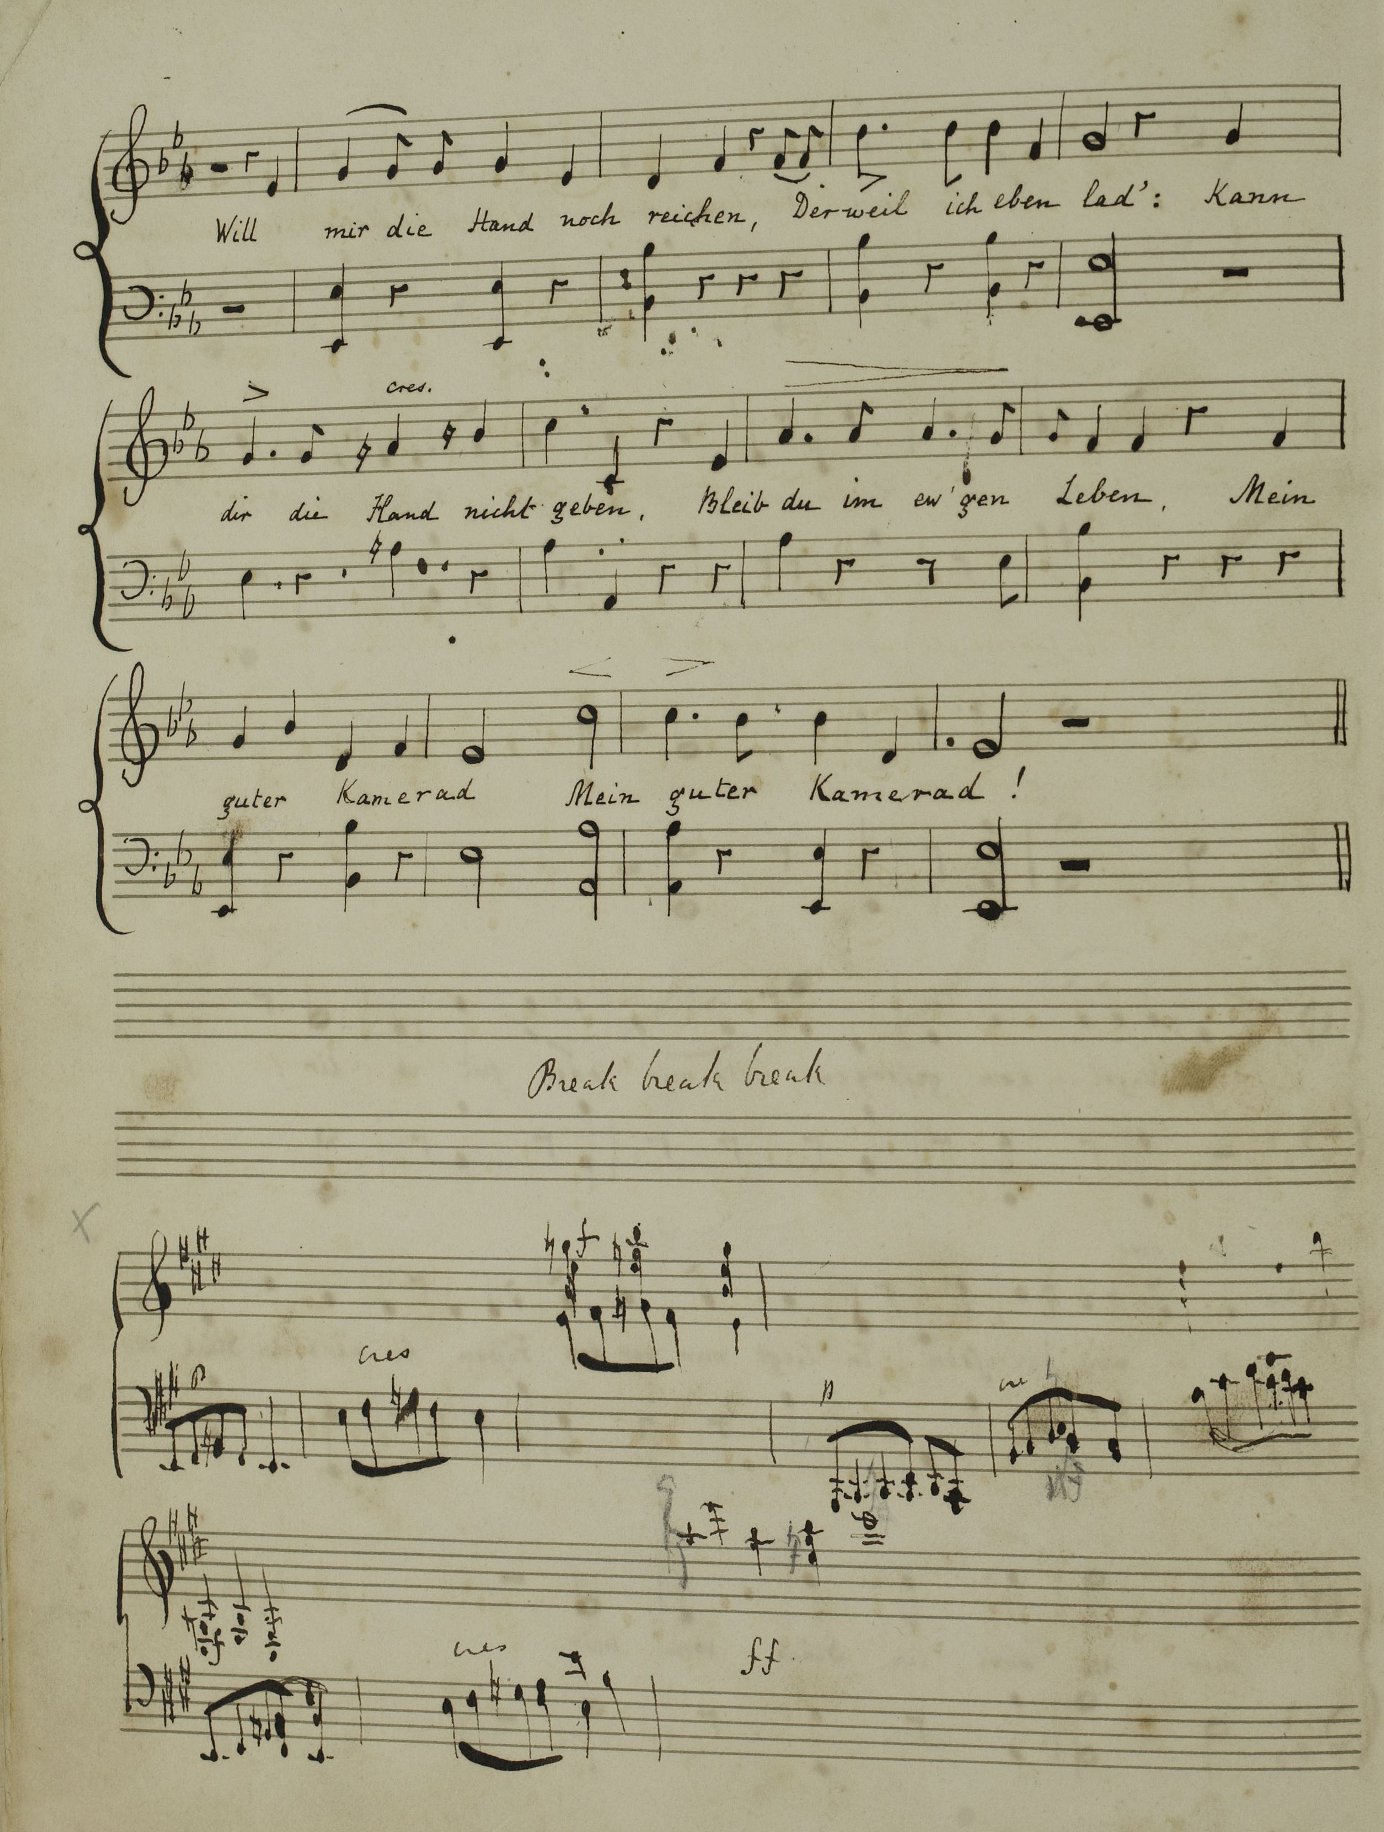 Will mir die Hand noch reichen, Derweil ich eben lad': Kann
cres.
dir die Hand nicht geben, Bleib du im ew'gen Leben, Mein
guter Kamerad Mein guter Kamerad!
Break break break
f
cres
p
cres
ff